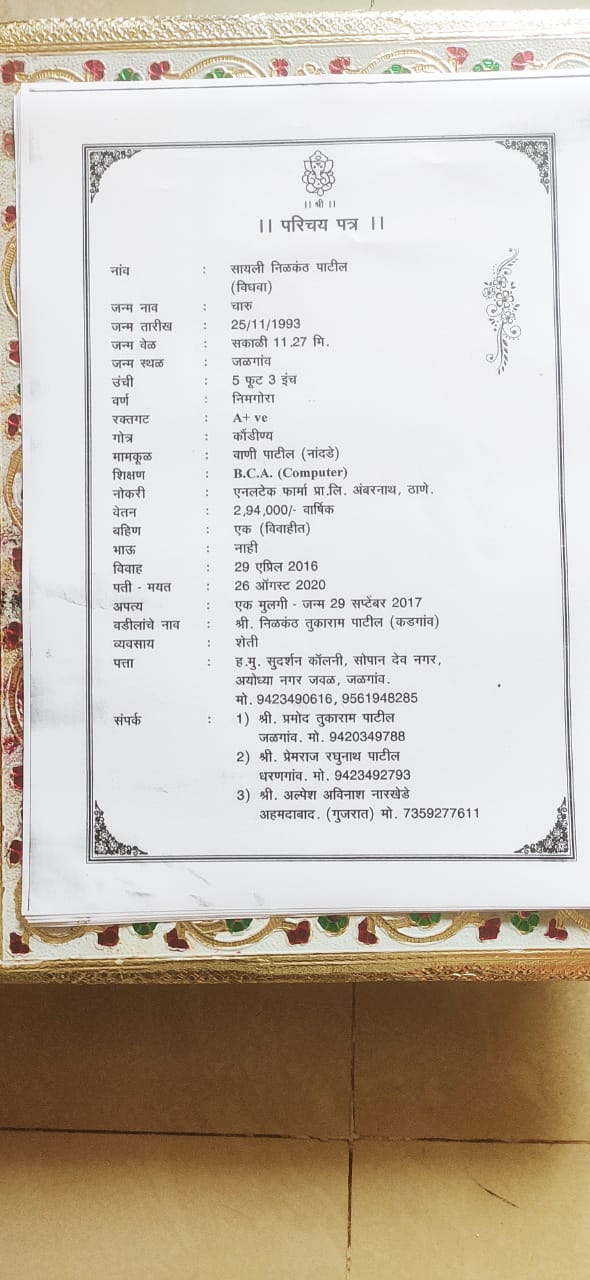 ।। श्री ।।
।। परिचय पत्र ।।
नांव : सायली निळकंठ पाटील
(विधवा)
जन्म नाव : चारु
जन्म तारीख : 25/11/1993
जन्म वेळ : सकाळी 11.27 मि.
जन्म स्थळ : जळगांव
उंची : 5 फूट 3 इंच
वर्ण : निमगोरा
रक्तगट : A+ ve
गोत्र : कौंडीण्य
मामकूळ : वाणी पाटील (नांदडे)
शिक्षण : B.C.A. (Computer)
नोकरी : एनलटेक फार्मा प्रा.लि. अंबरनाथ, ठाणे.
वेतन : 2,94,000/- वार्षिक
बहिण : एक (विवाहीत)
भाऊ : नाही
विवाह : 29 एप्रिल 2016
पती - मयत : 26 ऑगस्ट 2020
अपत्य : एक मुलगी - जन्म 29 सप्टेंबर 2017
वडीलांचे नाव : श्री. निळकंठ तुकाराम पाटील (कडगांव)
व्यवसाय : शेती
पत्ता : ह.मु. सुदर्शन कॉलनी, सोपान देव नगर,
अयोध्या नगर जवळ, जळगांव.
मो. 9423490616, 9561948285
संपर्क : 1) श्री. प्रमोद तुकाराम पाटील
जळगांव. मो. 9420349788
2) श्री. प्रेमराज रघुनाथ पाटील
धरणगांव. मो. 9423492793
3) श्री. अल्पेश अविनाश नारखेडे
अहमदाबाद. (गुजरात) मो. 7359277611